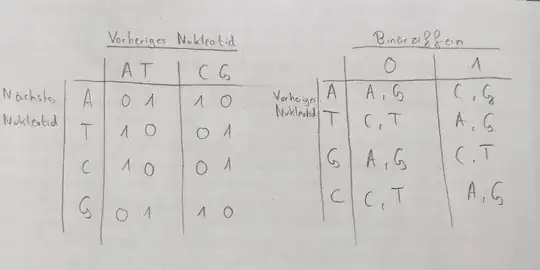 Vorheriges Nukleotid
A T C G
Nächstes Nukleotid
A 0 1 1 0
T 1 0 0 1
C 1 0 0 1
G 0 1 1 0
Binärziffern
0 1
Vorheriges Nukleotid
A A, G C, G
T C, T A, G
G A, G C, T
C C, T A, G